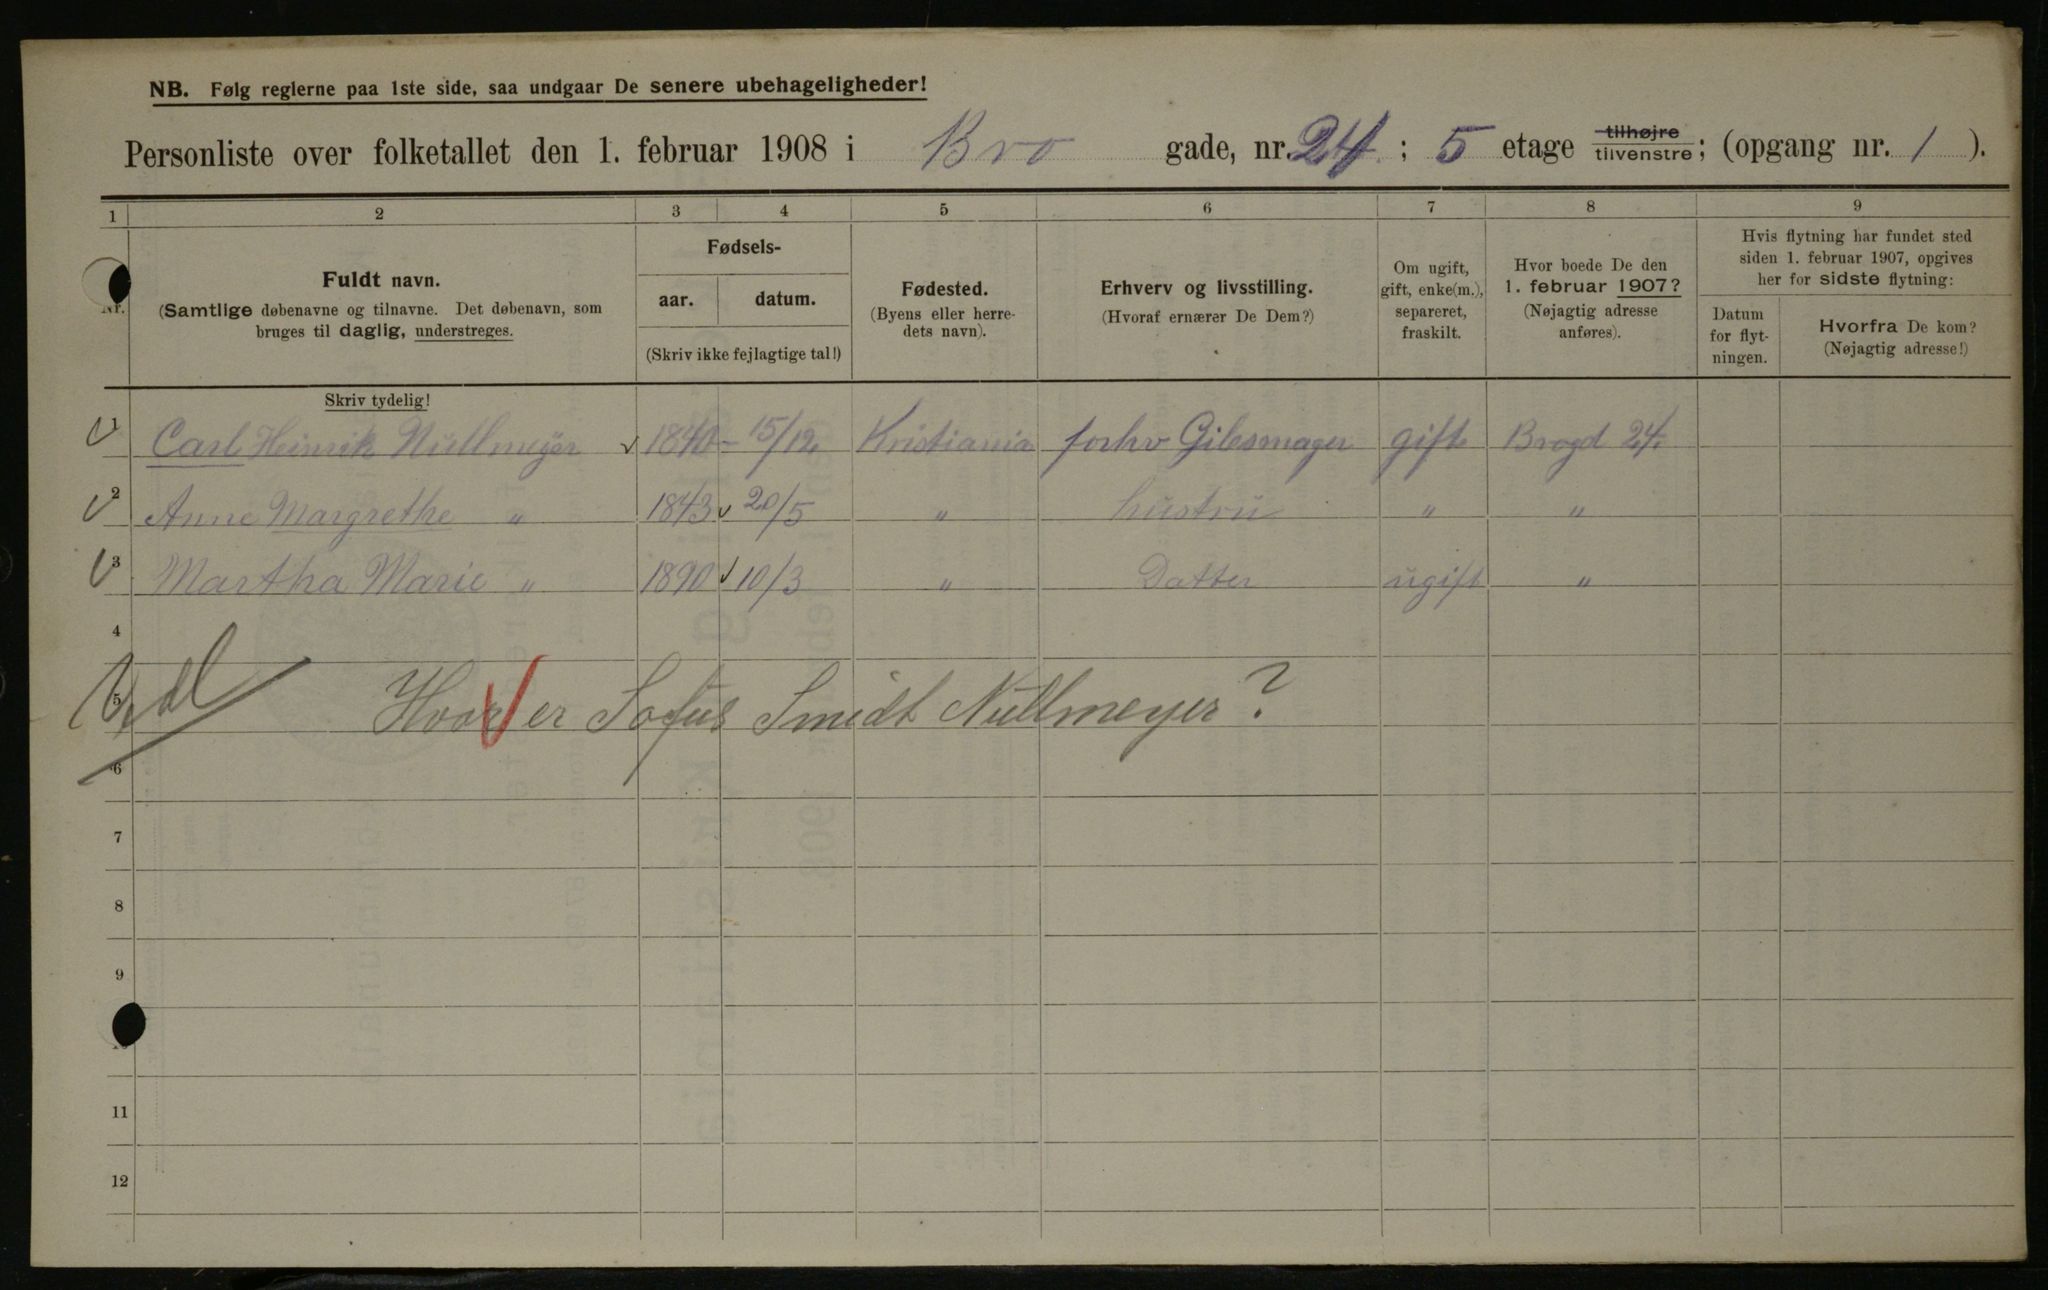 NB. Følg reglerne paa 1ste side, saa undgaar De senere ubehageligheder!
Personliste over folketallet den 1. februar 1908 i Bro gade, nr. 24 ; 5 etage tilhøjre tilvenstre; (opgang nr. 1 ).
1 2 3 4 5 6 7 8 9
Nr.
Fuldt navn.
(Samtlige døbenavne og tilnavne. Det døbenavn, som
bruges til daglig, understreges.
Skriv tydelig!
Fødsels-
aar. datum.
(Skriv ikke fejlagtige tal!)
Fødested.
(Byens eller herre-
dets navn).
Erhverv og livsstilling.
(Hvoraf ernærer De Dem?)
Om ugift,
gift, enke(m.),
separeret,
fraskilt.
Hvor boede De den
1. februar 1907?
(Nøjagtig adresse
anføres).
Hvis flytning har fundet sted
siden 1. februar 1907, opgives
her for sidste flytning:
Datum
for flyt-
ningen.
Hvorfra De kom?
(Nøjagtig adresse!)
1 Carl Heinrik Nüllmeyer 1840 - 15/12 Kristiania forhv Gibsmager gift Brogd 24.
2 Anne Margrethe " 1843 20/5 " hustru " "
3 Martha Marie " 1890 10/3 " Datter ugift "
4
5 Hvor er Sofus Smidt Nüllmeyer?
6
7
8
9
10
11
12